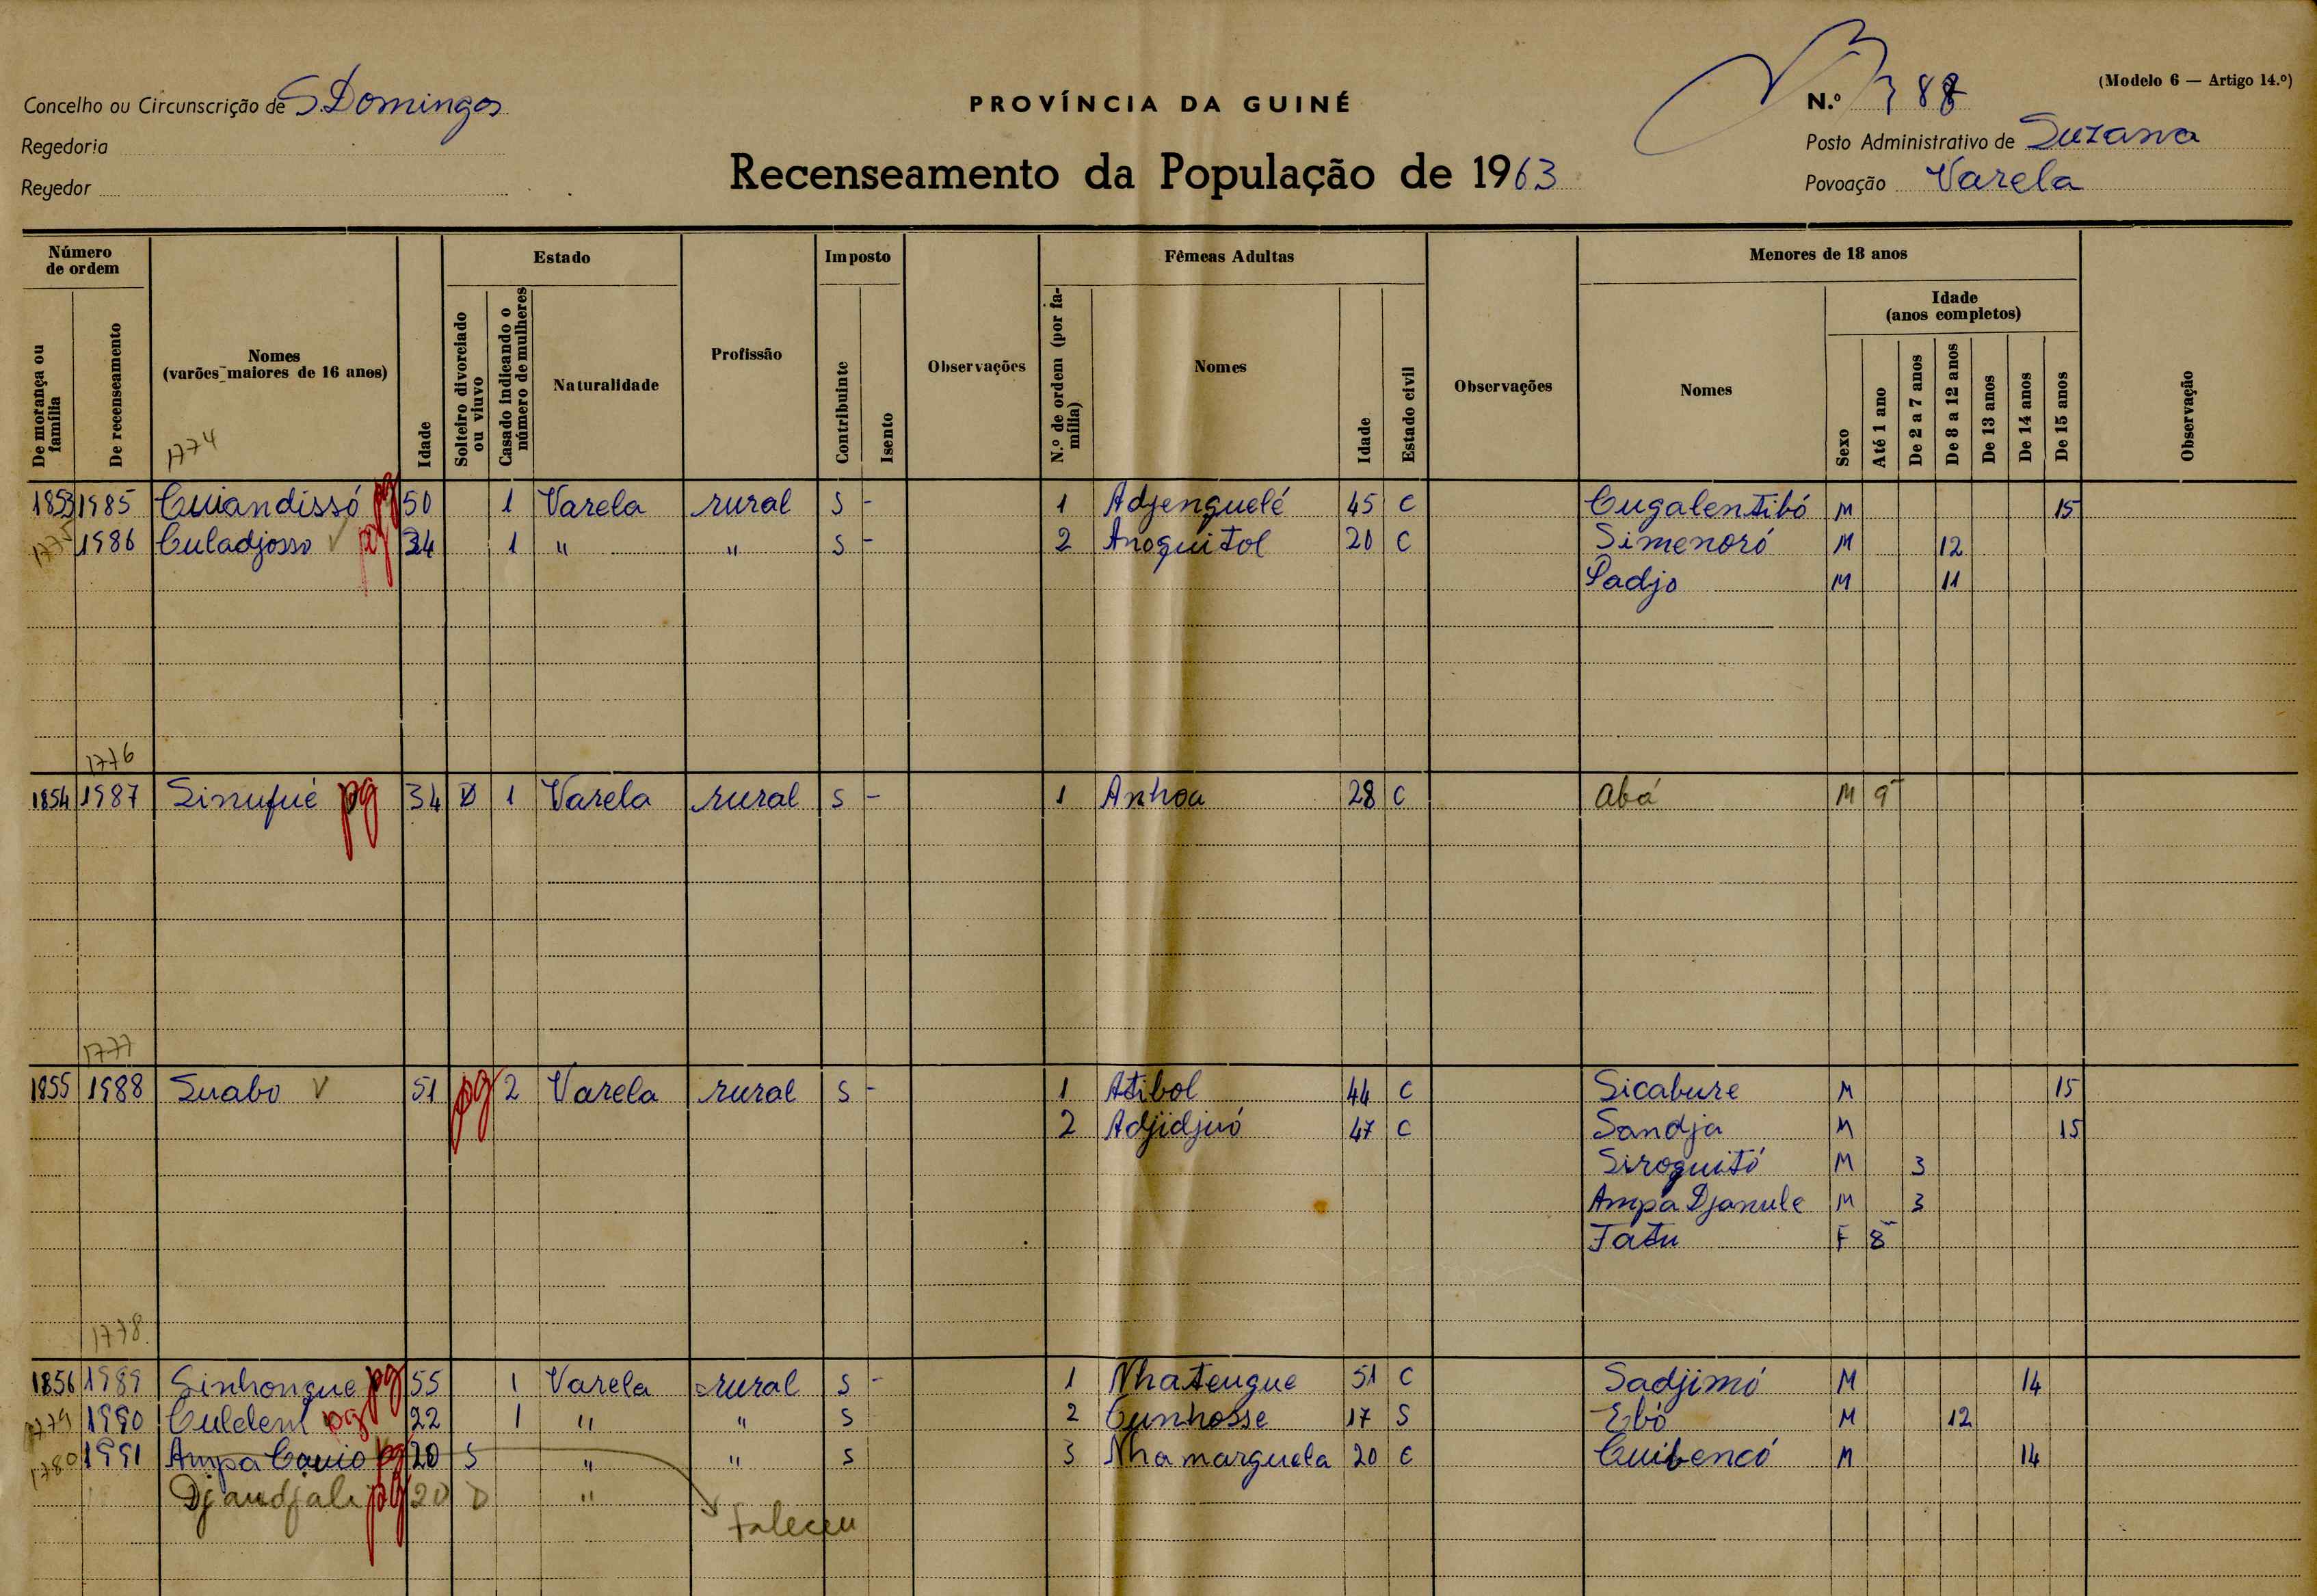 (Modelo 6 — Artigo 14.º)
Concelho ou Circunscrição de S. Domingos
PROVÍNCIA DA GUINÉ
N.º 388
Regedoria
Posto Administrativo de Suzana
Regedor
Recenseamento da População de 1963
Povoação Varela
Número de ordem
De morança ou família
De recenseamento
Nomes (varões maiores de 16 anos)
Idade
Estado
Solteiro divorciado ou viuvo
Casado indicando o número de mulheres
Naturalidade
Profissão
Imposto
Contribuinte
Isento
Observações
Fêmeas Adultas
N.º de ordem (por família)
Nomes
Idade
Estado civil
Observações
Menores de 18 anos
Nomes
Sexo
Idade (anos completos)
Até 1 ano
De 2 a 7 anos
De 8 a 12 anos
De 13 anos
De 14 anos
De 15 anos
Observação
1774
1853 1985 Cuiandissó pg 50 1 Varela rural S - 1 Adjenguelé 45 C Cugalentibó M 15
1775 1986 Culadjosso V pg 34 1 " " S - 2 Anoguitol 20 C Simenoró M 12
Padjo M 11
1776
1854 1987 Sinufué pg 34 1 Varela rural S - 1 Anhoa 28 C Abá M 9
1777
1855 1988 Suabo V 51 pg 2 Varela rural S - 1 Atibol 44 C Sicabure M 15
2 Adjidjuó 47 C Sandja M 15
Siroguitó M 3
Ampa Djanule M 3
Fatu F 8
1778
1856 1989 Sinhongue pg 55 1 Varela rural S - 1 Nhatengue 51 C Sadjimó M 14
1779 1990 Culdent pg 22 1 " " S 2 Cunhosse 17 S Ebó M 12
1780 1991 Ampa Cauio pg 20 S " " S 3 Nhamarguela 20 C Cuibencó M 14
Djandjali pg 20 D "
faleceu